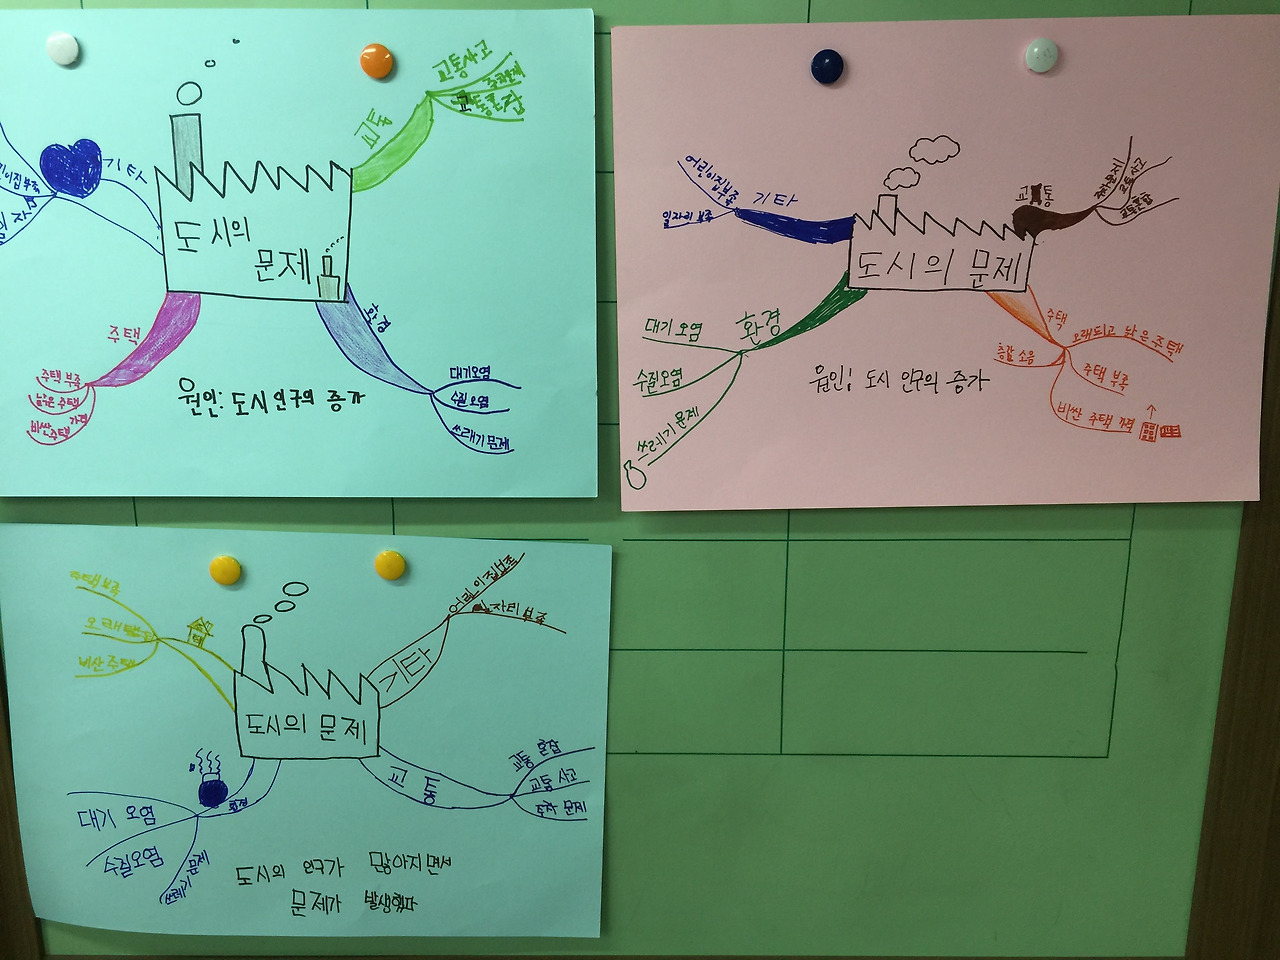 기타
도시의
문제
교통
교통사고
주차문제
교통혼잡
주택
주택 부족
낡은 주택
비싼 주택 가격
환경
대기오염
수질 오염
쓰래기 문제
원인: 도시 인구의 증가
도시의 문제
기타
어린이집부족
일자리 부족
교통
주차문제
교통사고
교통혼잡
환경
대기 오염
수질오염
쓰레기 문제
주택
오래되고 낡은 주택
층간 소음
주택 부족
비싼 주택 가격
원인; 도시 인구의 증가
도시의 문제
주택부족
비산 주택
기타
어린이집부족
자리 부족
교통
교통 혼잡
교통 사고
주차 문제
환경
대기 오염
수질오염
쓰레기 문제
도시의 인구가 많아지면서
문제가 발생했다